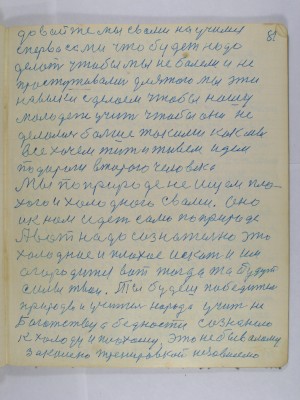 давайте мы с вами научимся
сперва сами что будет надо
делать чтобы мы не болели и не
простуживались для этого мы эти
навыки сделаем чтобы нашу
молодежь учить чтобы они не
делались больше такими как мы
все хотели жить и живем идем
по дороги второго человека
Мы по природе не ищем пло-
хого и холодного с вами. Оно
к нам идет само по природе
А вот надо сознательно это
холодное и плохое искать и им
огородится вот тогда то будут
силы твои. Ты будеш победитель
природы и учитель народа учит не
Богатству а бедности сознанию
к холоду и плохому, это небывалому
закалено тренировкой
81